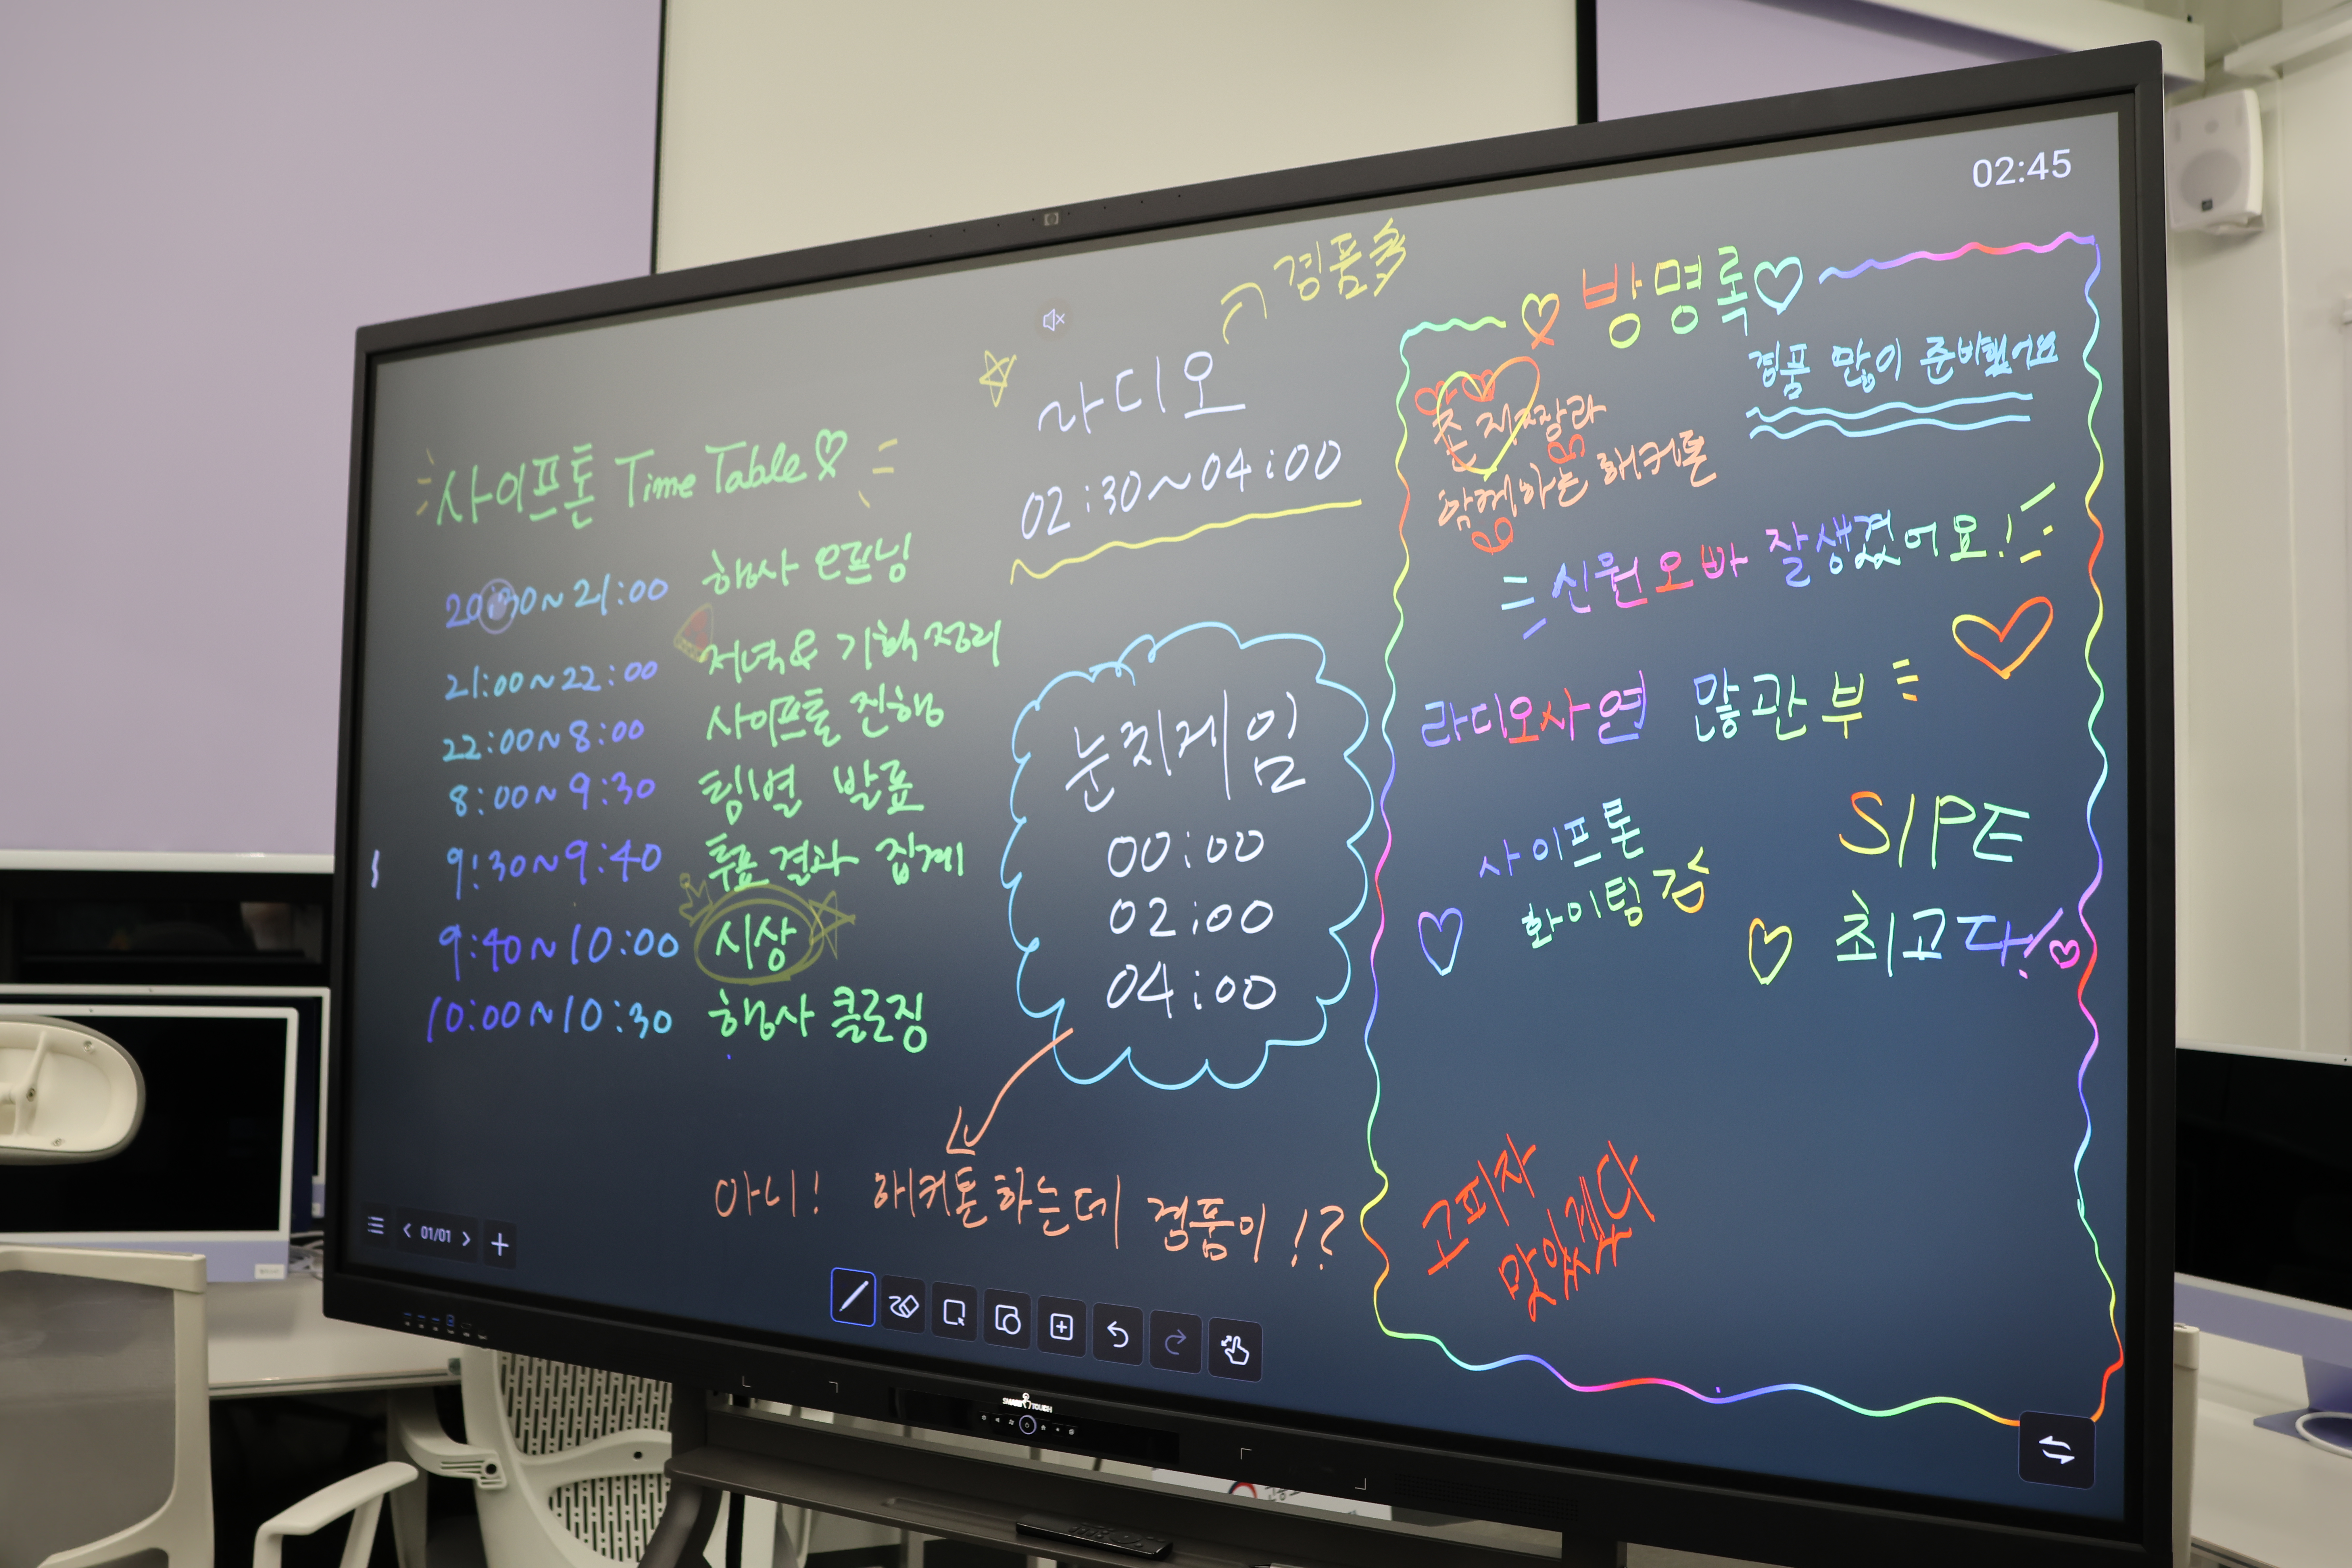 02:45
사이프톤 Time Table
20:30~21:00 행사 오프닝
21:00~22:00 저녁 & 기획 정리
22:00~8:00 사이프톤 진행
8:00~9:30 팀별 발표
9:30~9:40 투표 결과 집계
9:40~10:00 시상
10:00~10:30 행사 클로징
경품多
라디오
02:30~04:00
눈치게임
00:00
02:00
04:00
아니! 해커톤하는데 경품이!?
방명록
경품 많이 준비했어요
함께하는 해커톤
신원오빠 잘생겼어요!
라디오사연 많관부
사이프톤
화이팅 김
SIPE
최고다!
고피자
맛있겠다
01/01
SMART TOUCH